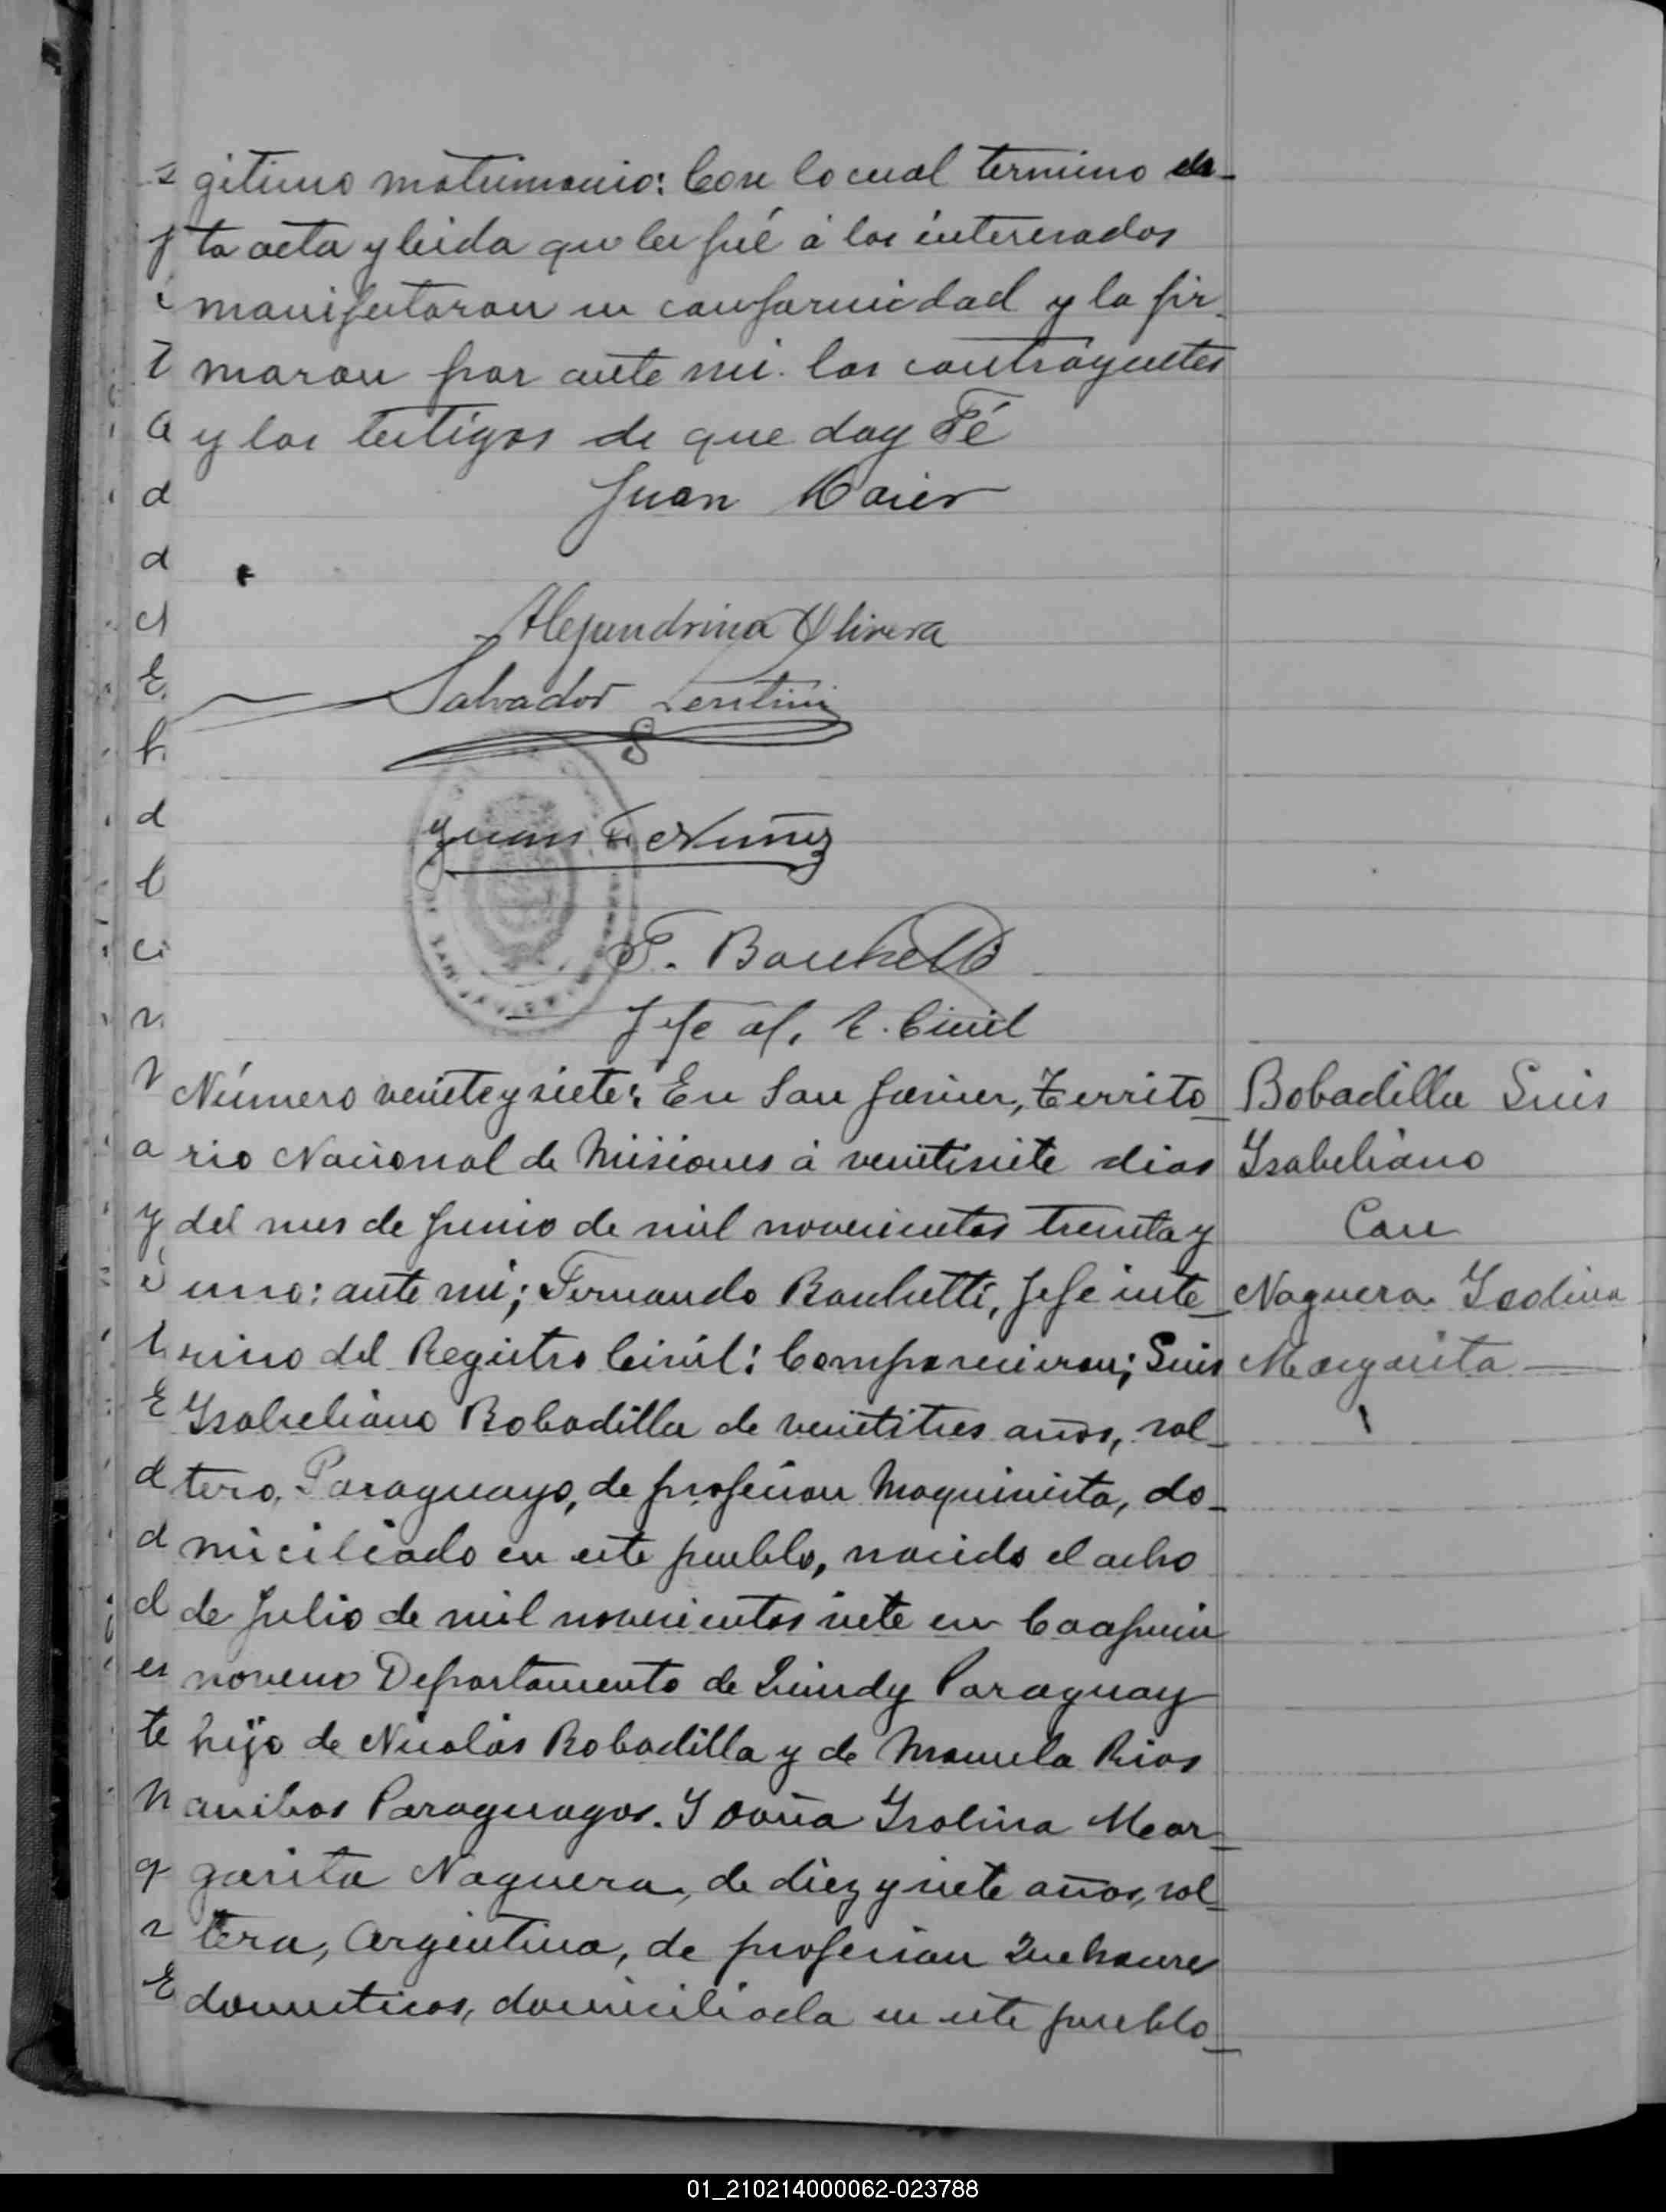 gitimo matrimonio: Con lo cual termino es-
ta acta y leida que les fué á los interesados
manifestaron su conformidad y la fir-
maron por ante mi. los contrayentes
y los testigos de que doy Fé
Juan Maier
Alejandrina Olivera
Salvador Lentini
Juan F. Nuñez
F. Banchetti
Jefe of. R. Civil
Número veinte y siete: En San Javier, Territo-
rio Nacional de Misiones á veintisiete dias
del mes de Junio de mil novecientos treinta y
uno: ante mi; Fernando Banchetti, Jefe inte-
rino del Registro Civil: Comparecieron; Luis
Ysabeliano Bobadilla de veintitres años, sol-
tero, Paraguayo, de profesion Maquinista, do-
miciliado en este pueblo, nacido el ocho
de Julio de mil novecientos siete en
noveno Departamento de Quiindy Paraguay
hijo de Nicolás Bobadilla y de Manuela Rios
ambos Paraguayos. Y Doña Ysolina Mar-
garita Noguera, de diez y siete años, sol-
tera, Argentina, de profesion Quehaceres
domesticos, domiciliada en este pueblo-
Bobadilla Luis
Ysabeliano
Con
Noguera Ysolina
Margarita
01_210214000062-023788